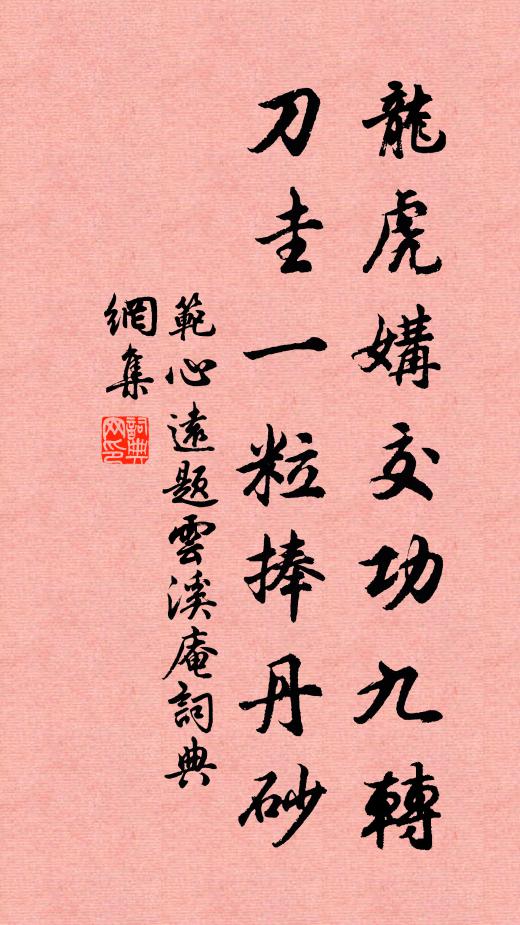 龍虎媾交功九轉
刀圭一粒捧丹砂
範心遠題雲溪庵詞典
網集
詞典網印